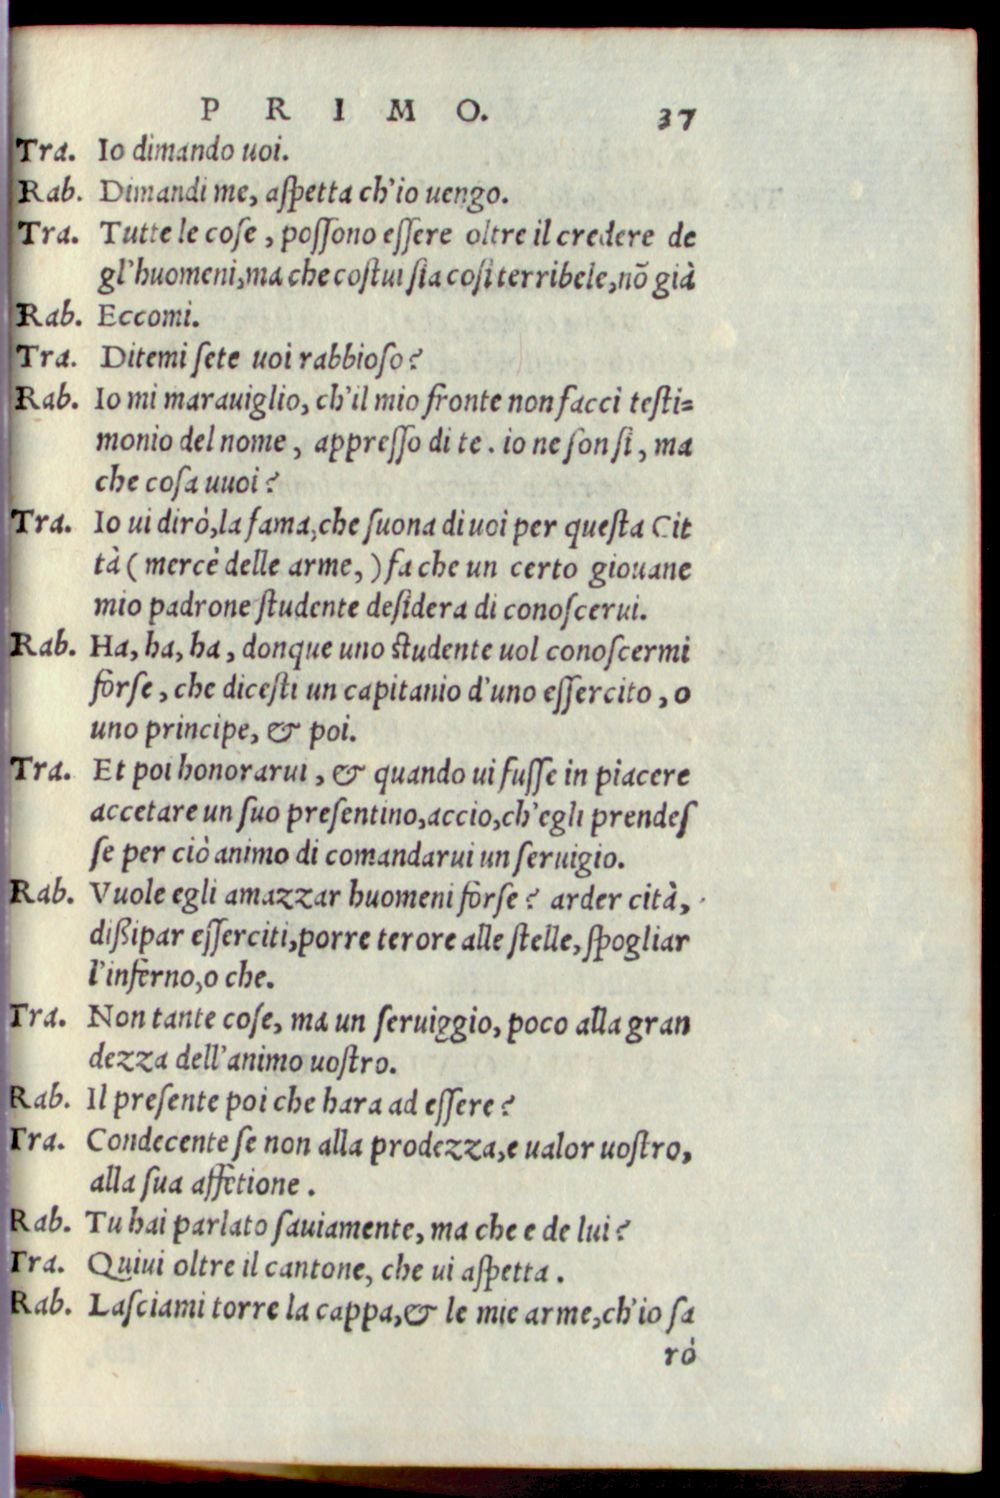 PRIMO. 37
Tra. Io dimando uoi.
Rab. Dimandi me, aſpetta ch'io uengo.
Tra. Tutte le coſe, poſſono eſſere oltre il credere de
gl'huomeni,ma che coſtui ſia coſi terribele,nõ già
Rab. Eccomi.
Tra. Ditemi ſete uoi rabbioſo?
Rab. Io mi marauiglio, ch'il mio fronte non facci teſti=
monio del nome, appreſſo di te. io ne ſon ſi, ma
che coſa uuoi?
Tra. Io ui dirò,la fama,che ſuona di uoi per queſta Cit
tà (mercè delle arme,) fa che un certo giouane
mio padrone ſtudente deſidera di conoſcerui.
Rab. Ha, ha, ha, donque uno ſtudente uol conoſcermi
forſe, che diceſti un capitanio d'uno eſſercito, o
uno principe, & poi.
Tra. Et poi honorarui, & quando ui fuſſe in piacere
accetare un ſuo preſentino,accio,ch'egli prendeſ
ſe per ciò animo di comandarui un ſeruigio.
Rab. Vuole egli amazzar huomeni forſe? arder cità,
dißipar eſſerciti,porre terore alle ſtelle,ſpogliar
l'inferno,o che.
Tra. Non tante coſe, ma un ſeruiggio, poco alla gran
dezza dell'animo uoſtro.
Rab. Il preſente poi che hara ad eſſere?
Tra. Condecente ſe non alla prodezza,e ualor uoſtro,
alla ſua affetione.
Rab. Tu hai parlato ſauiamente, ma che e de lui?
Tra. Quiui oltre il cantone, che ui aſpetta.
Rab. Laſciami torre la cappa,& le mie arme,ch'io ſa
rò